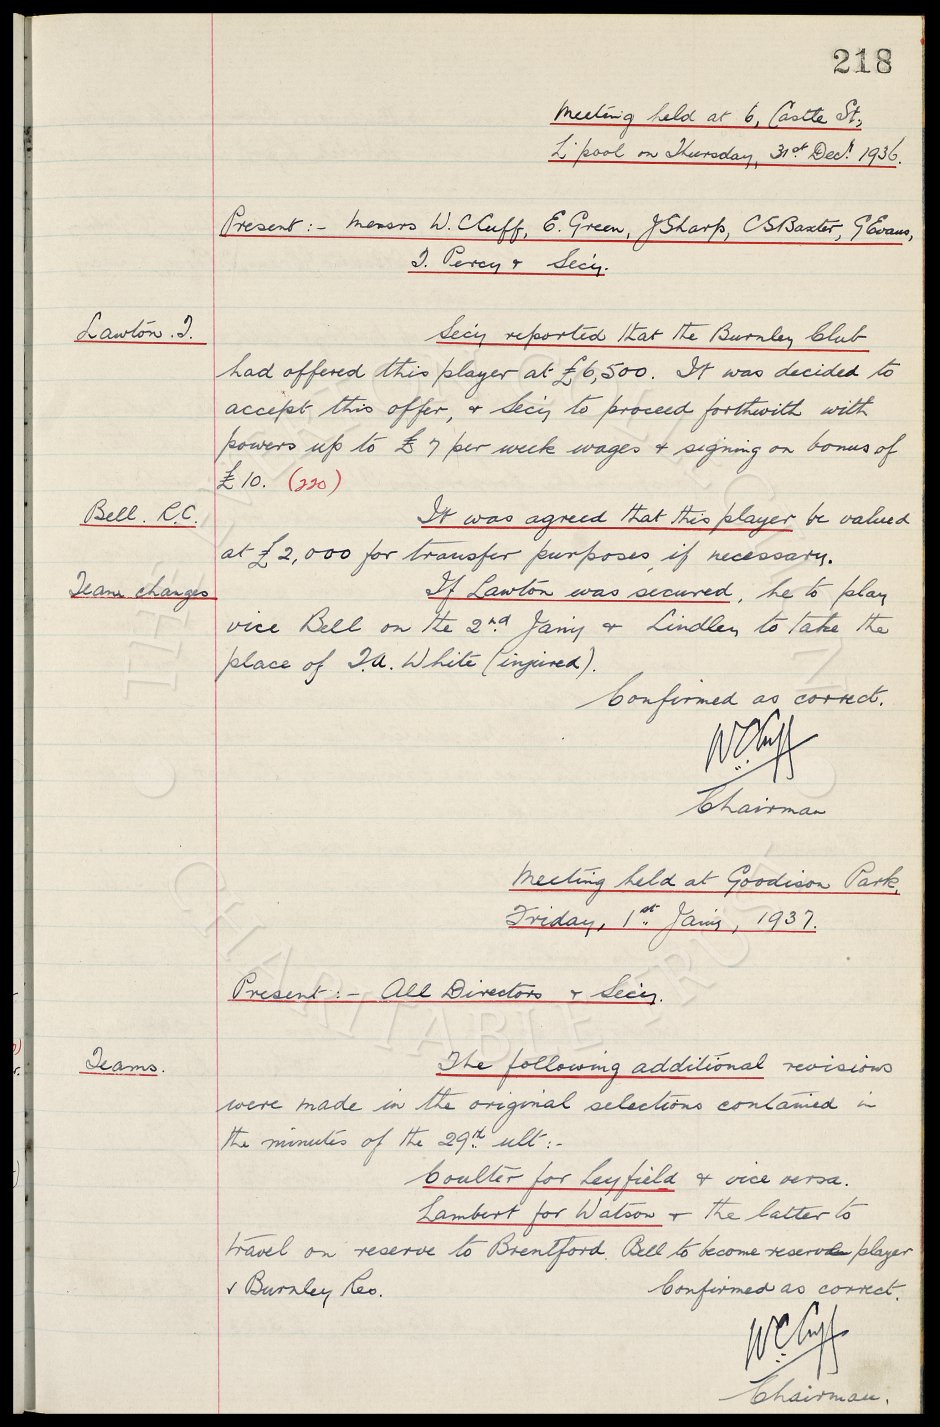 218
Meeting held at 6, Castle St.,
L'pool on Thursday, 31st Decr. 1936.
Present :- Messrs W. C. Cuff, E. Green, J Sharp, C S Baxter, G Evans,
T. Percy & Secy.
Lawton. T.
Secy reported that the Burnley Club
had offered this player at £6,500. It was decided to
accept this offer, & Secy to proceed forthwith with
powers up to £7 per week wages & signing on bonus of
£10. (220)
Bell. R.C.
It was agreed that this player be valued
at £2,000 for transfer purposes, if necessary.
Team changes
If Lawton was secured, he to play
vice Bell on the 2nd Jany & Lindley to take the
place of T.A. White (injured).
Confirmed as correct.
W C Cuff
Chairman
Meeting held at Goodison Park,
Friday, 1st Jany, 1937.
Present :- All Directors & Secy.
Teams.
The following additional revisions
were made in the original selections contained in
the minutes of the 29th ult :-
Coulter for Leyfield & vice versa.
Lambert for Watson & the latter to
travel on reserve to Brentford. Bell to become reserve player
v Burnley Res.
Confirmed as correct.
W C Cuff
Chairman.
THE EVERTON COLLECTION
CHARITABLE TRUST